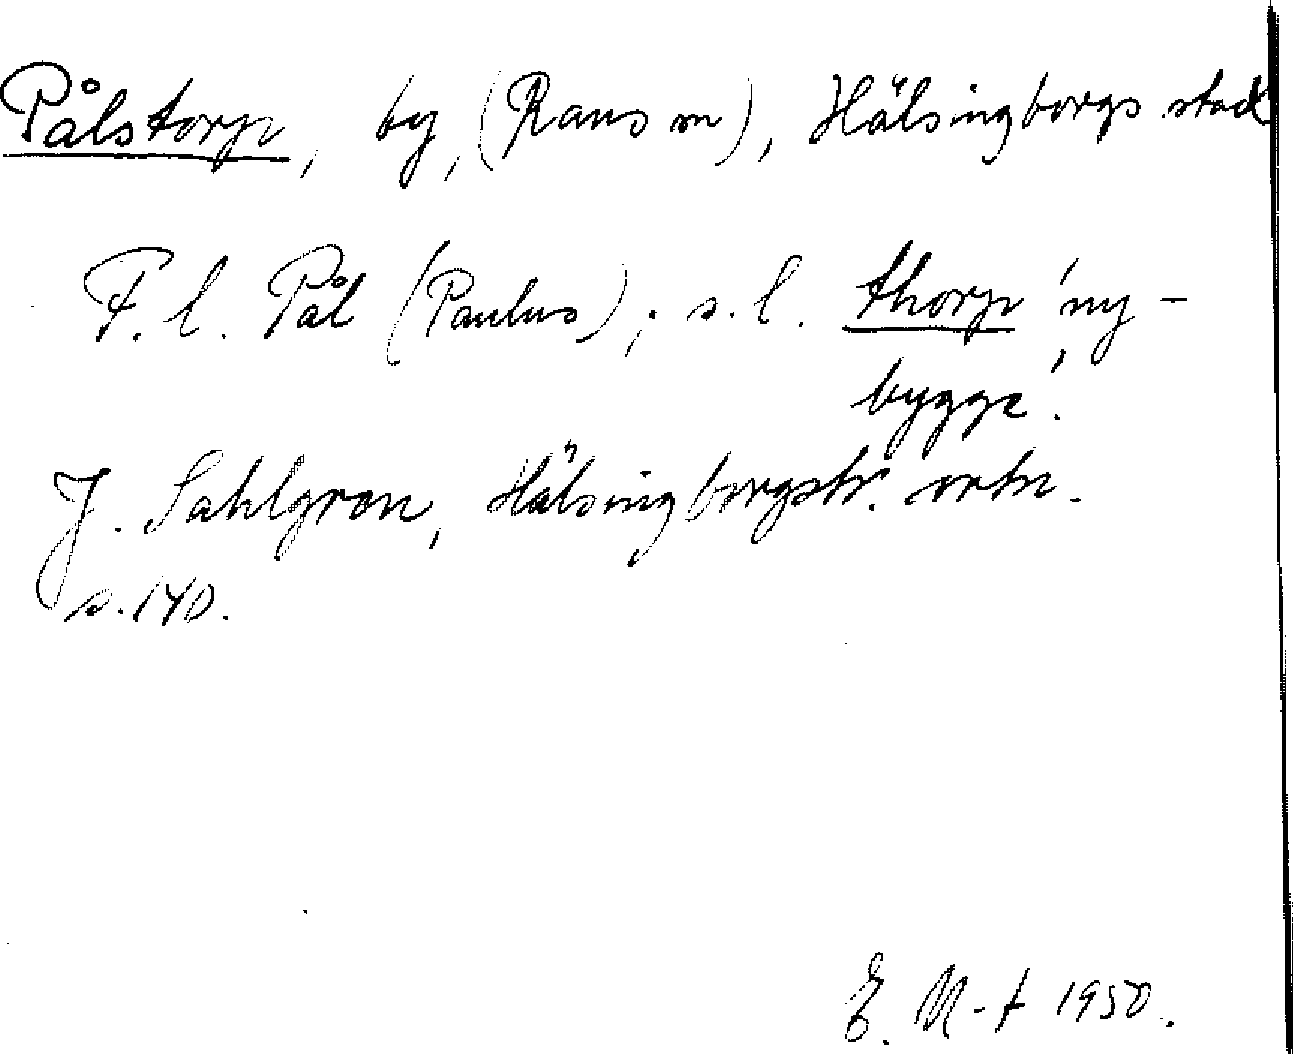 Pålstorp, by, (Raus sn), Hälsingborgs stad
F. l. Pål (Paulus); s. l. thorp 'ny-
bygge'.
J. Sahlgren, Hälsingborgstr. ortn.
s. 140.
E. N-t 1950.